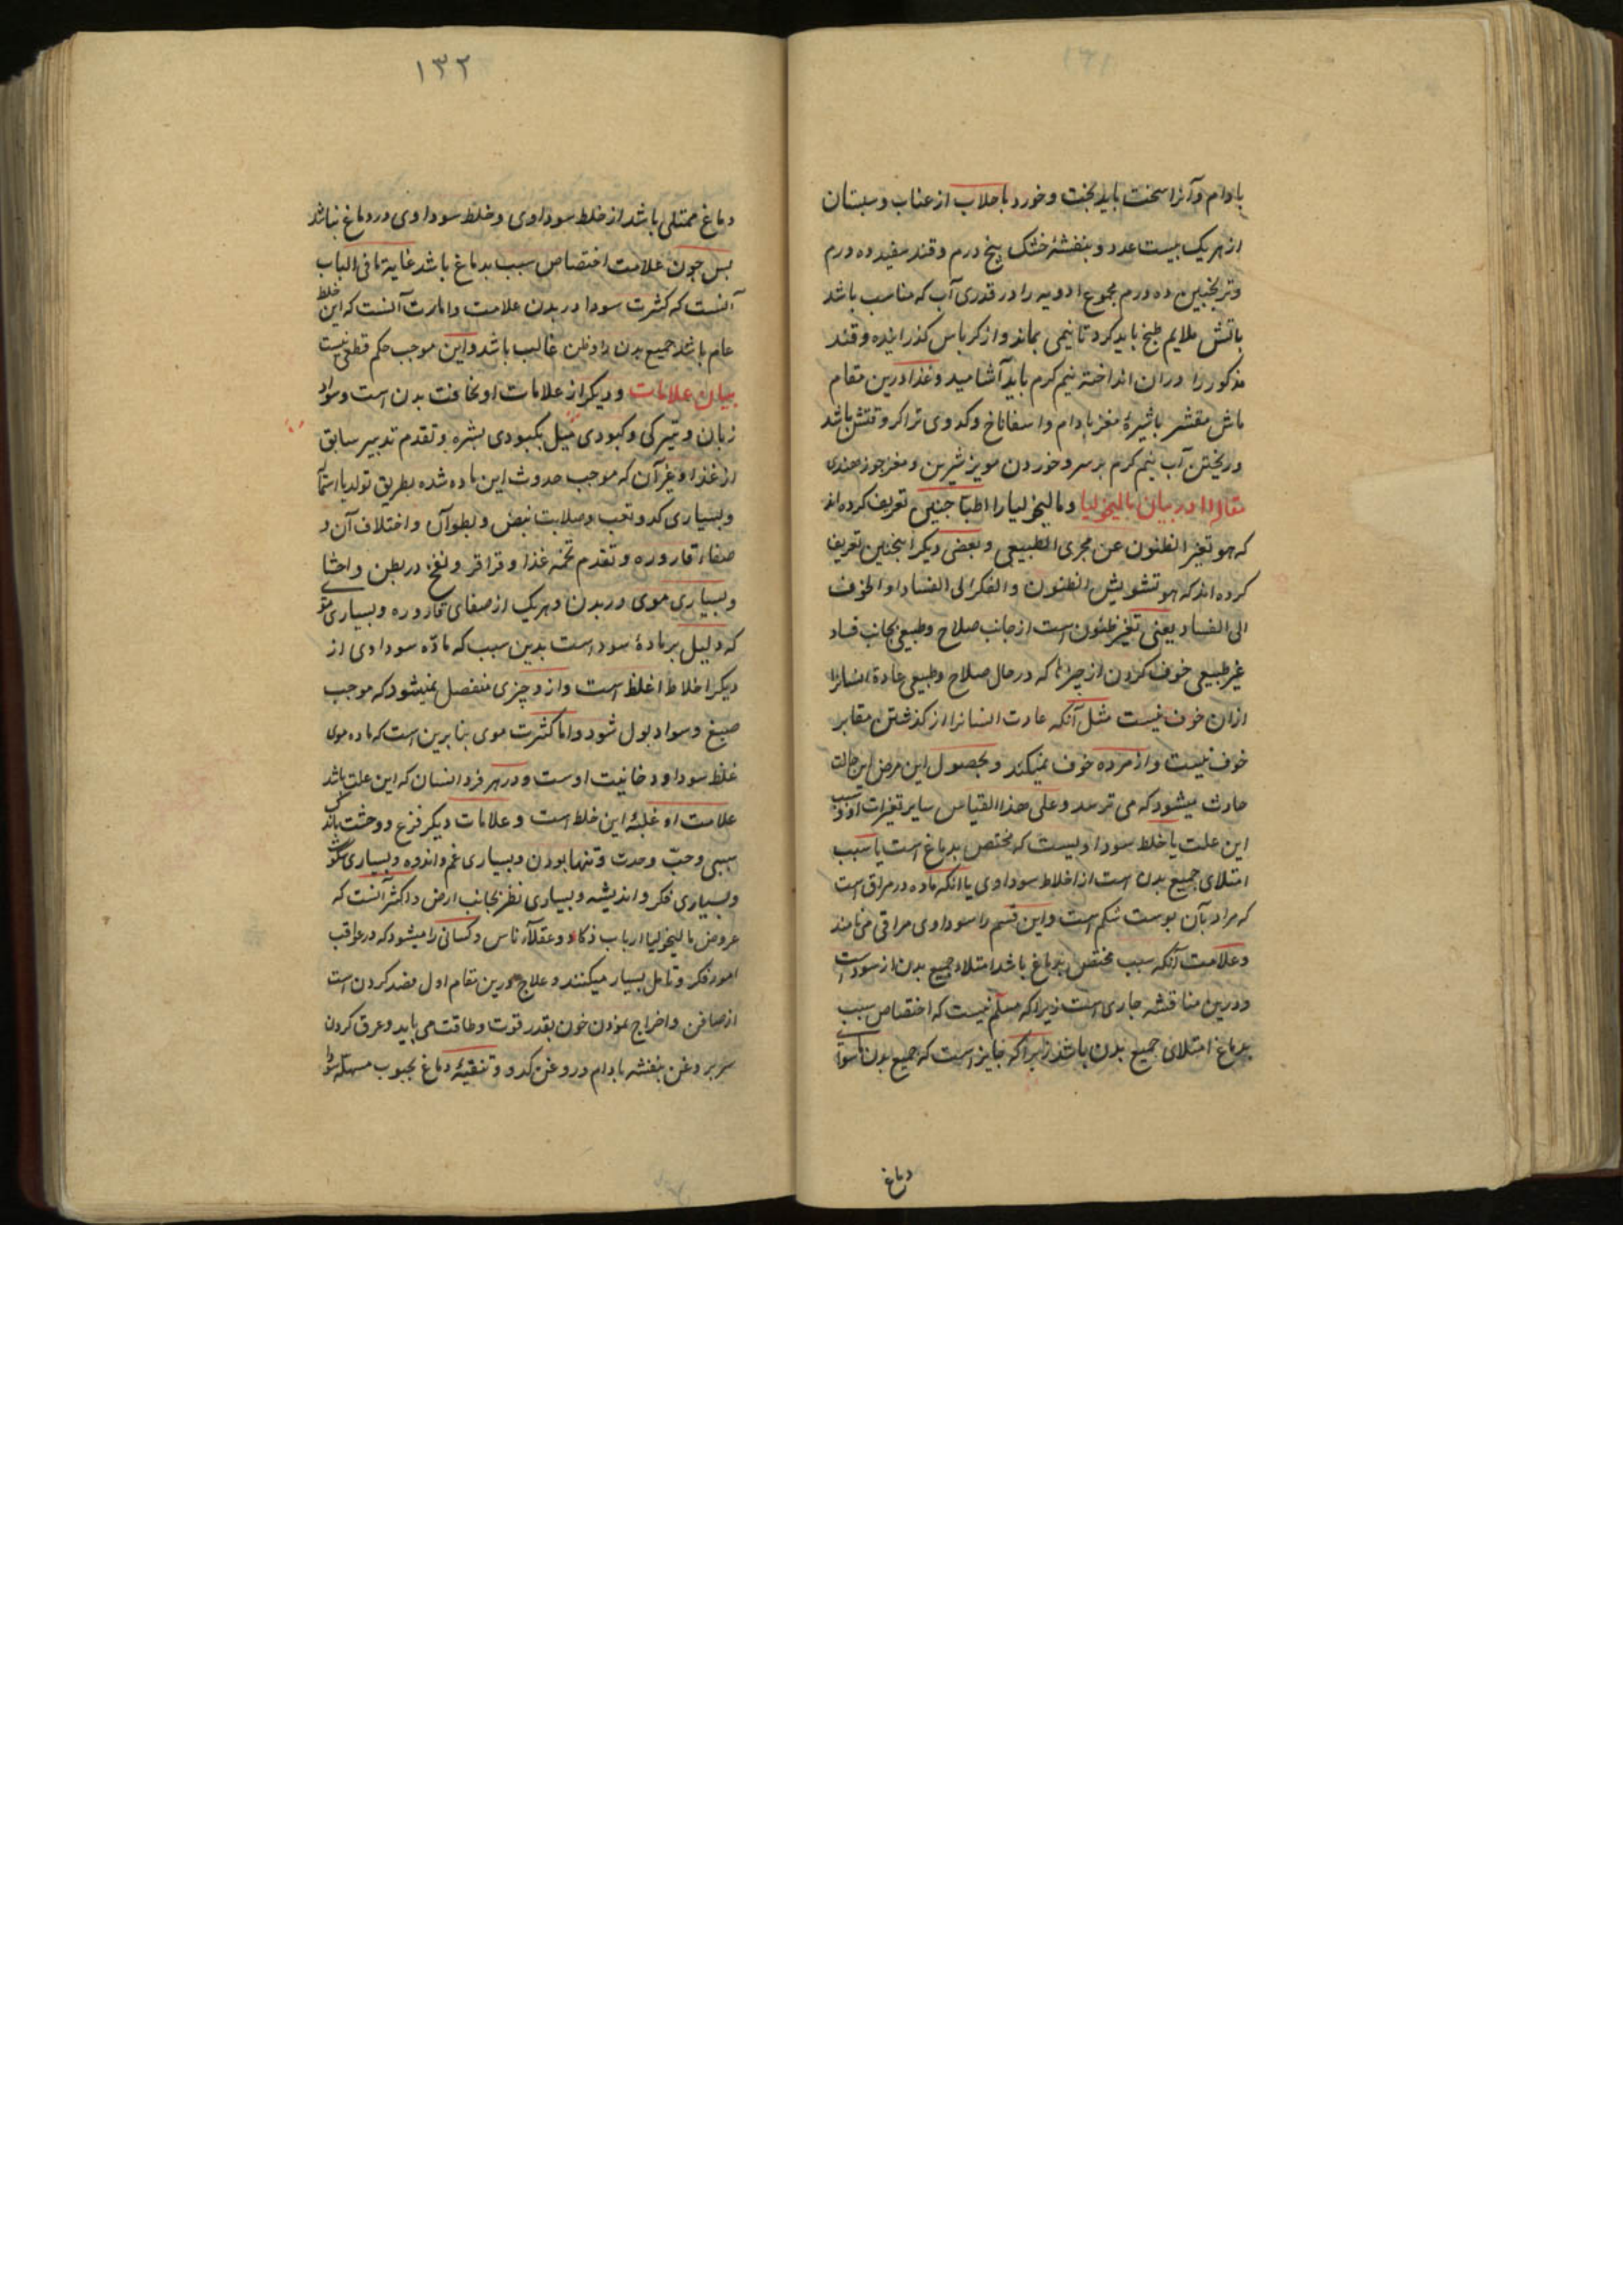 بادام و آنرا سخت باید پخت و خورد با جلاب از عناب و سپستان
از هر یک بیست عدد و بنفشهٔ خشک پنج درم و قند سفید ده درم
و ترنجبین ده درم مجموع ادویه را در قدری آب که مناسب باشد
باتش ملایم طبخ باید کرد تا نیمی بماند و از کرباس کذرانیده و قند
مذکور را دران انداخته نیم کرم باید آشامید و غذا درین مقام
ماش مقشر با شیرهٔ مغز بادام و اسفاناخ و کدوی تر اکر وقتش باشد
و ریختن آب نیم کرم بر سر و خوردن مویز شیرین و مغز جوز هندی
در بیان مالیخولیا و مالیخولیا را اطبا چنین تعریف کرده اند
که هو تغیر الظنون عن مجری الطبیعی و بعضی دیکر اینچنین تعریف
کرده اند که هو تشویش الظنون و الفکر الی الفساد او الخوف
الی الفساد یعنی تغیر ظنون است از جانب صلاح و طبیعی بجانب فساد
غیر طبیعی خوف کردن از چیزها که در حال صلاح و طبیعی عادة انسانرا
ازان خوف نیست مثل آنکه عادت انسانرا از کذشتن مقابر
خوف نیست و از مرده خوف نمیکند و بحصول این مرض این حالت
حادث میشود که می ترسد و علی هذا القیاس سایر تغیرات او و سبب
این علت یا خلط سوداویست که مختص بدماغ است یا سبب
امتلای جمیع بدن است از اخلاط سوداوی یا انکه ماده در مراق است
که مراد بآن پوست شکم است و این قسم را سوداوی مراقی می نامند
و علامت آنکه سبب مختص بدماغ باشد امتلاء جمیع بدن از سوداست
و درین مناقشه جاری است زیرا که مسلم نیست که اختصاص سبب
بدماغ امتلای جمیع بدن باشد زیرا که جایز است که جمیع بدن ماسوای
دماغ
۱۳۲
دماغ ممتلی باشد از خلط سوداوی و خلط سوداوی در دماغ نباشد
پس چون علامت اختصاص سبب بدماغ باشد غایة ما فی الباب
آنست که کثرت سودا در بدن علامت و امارت آنست که این خلط
عام باشد جمیع بدن را و ظن غالب باشد و این موجب حکم قطعی نیست
بیان علامات و دیکر از علامات او نحافت بدن است و سواد
زبان و تیرکی و کبودی میل بکبودی بشره و تقدم تدبیر سابق
از غذا و غیر آن که موجب حدوث این ماده شده بطریق تولد یا
و بسیاری کد و تعب و صلابت نبض و بطوء آن و اختلاف آن و
صفاء قاروره و تقدم تخمه غذا و قراقر و نفخ در بطن و احشای
و بسیاری موی در بدن و هر یک از صفای قاروره و بسیاری مو
که دلیل بر مادهٔ سوداست بدین سبب که مادّه سوداوی از
دیکر اخلاط اغلظ است و ازو چیزی منفصل نمیشود که موجب
صبغ و سواد بول شود و اما کثرت موی بنابرین است که ماده موی
غلظ سودا و دخانیت اوست و در هر فرد انسان که این علت باشد
علامت او غلبهٔ این خلط است و علامات دیکر فزع و وحشت باندک
سببی و حبّ وحدت و تنها بودن و بسیاری غم و اندوه و بسیاری سکوت
و بسیاری فکر و اندیشه و بسیاری نظر بجانب ارض و اکثر آنست که
عروض مالیخولیا ارباب ذکاء و عقلاء ناس و کسانی را میشود که در عواقب
امور فکر و تامل بسیار میکنند و علاج درین مقام اول فصد کردن است
از صافن و اخراج نمودن خون بقدر قوت و طاقت می باید و غرق کردن
سر بروغن بنفشه بادام و روغن کدو و تنقیهٔ دماغ بحبوب مسهله سودا